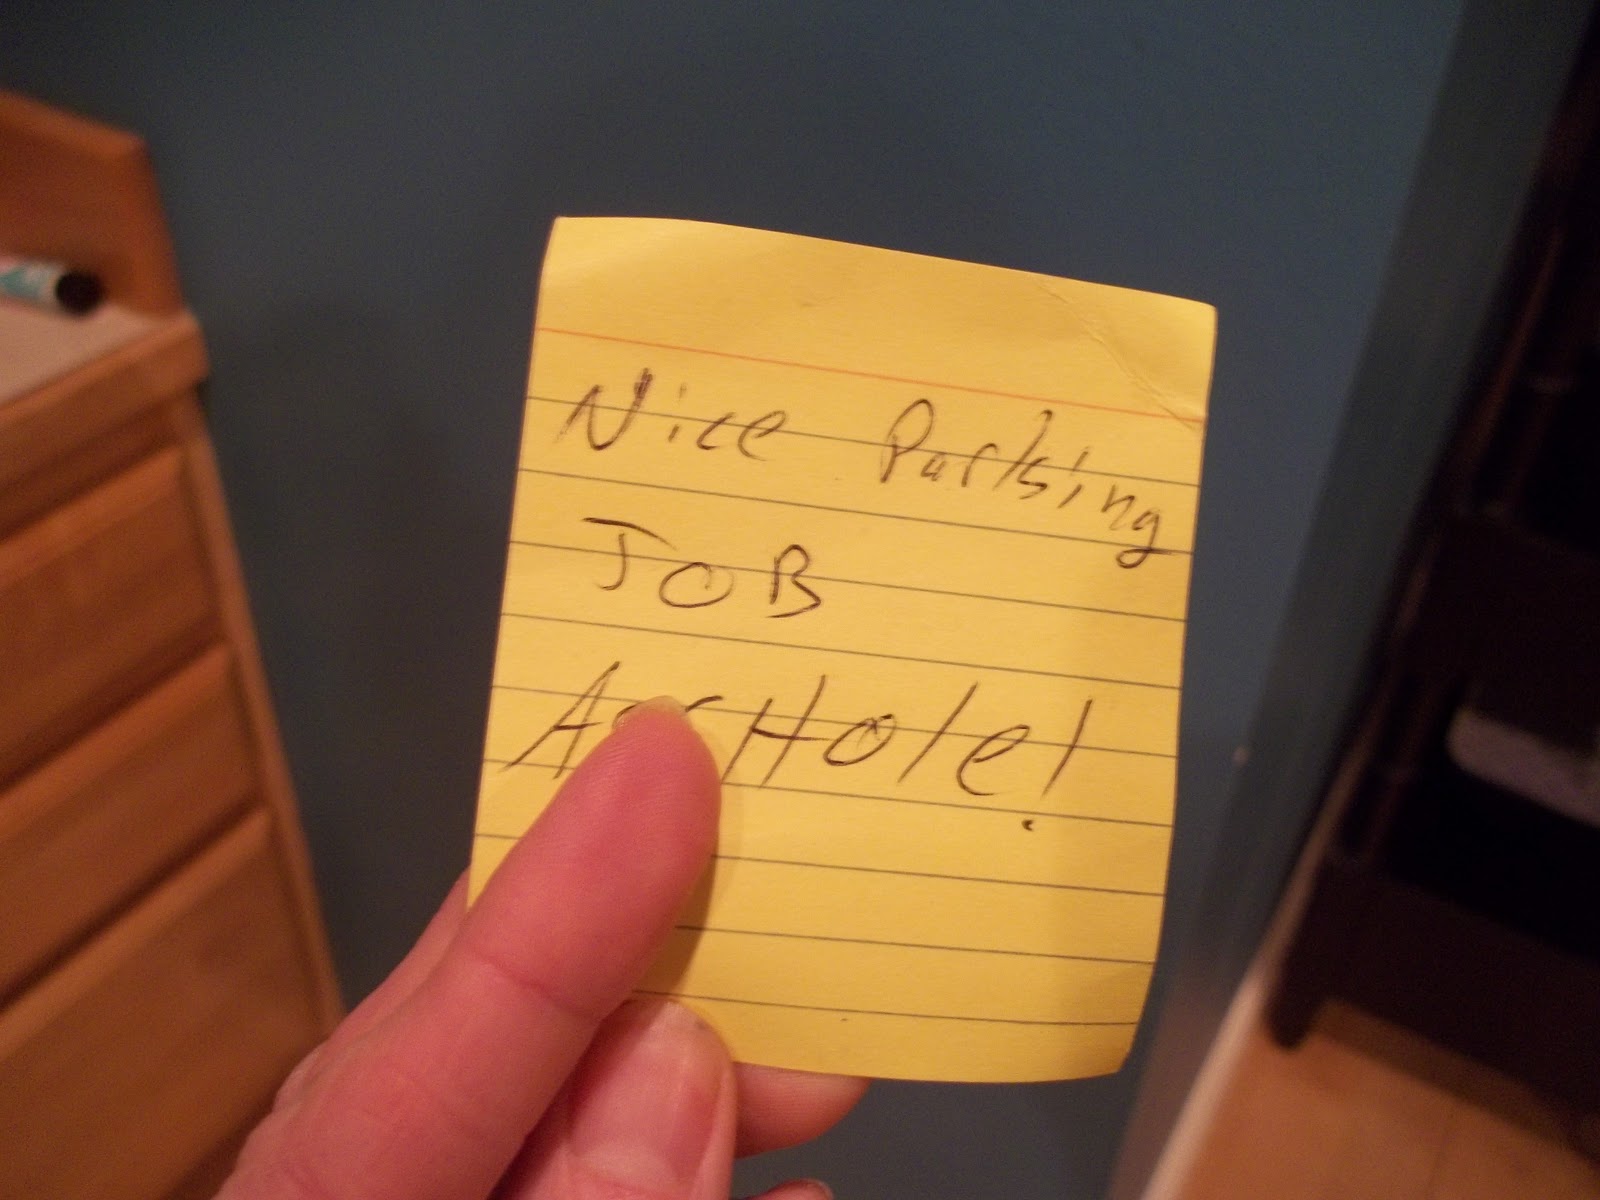 Nice Parking
JOB
AssHole!